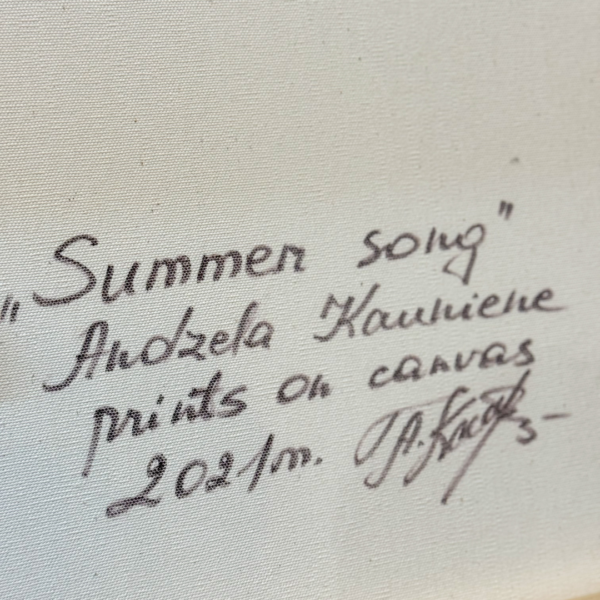 „Summer song"
Andzela Kauniene
prints on canvas
2021m.